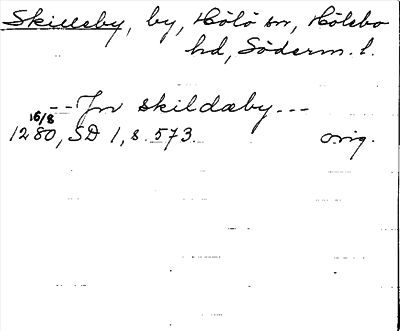 Skilleby, by, Hölö sn, Hölebo
hd, Söderm. l.
--Jn skildæby---
16/8
1280, SD 1, s. 573. orig.